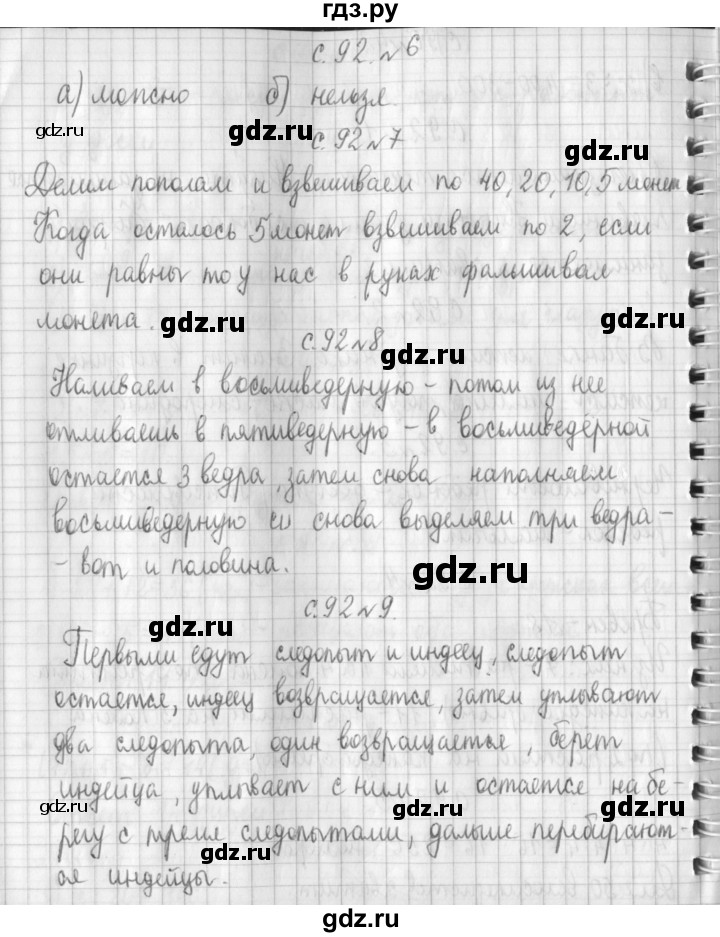 гдз.ру
с.92.№6
а) можно б) нельзя.
gdz.ru gdz.ru
с.92№7 gdz.ru
Делим пополам и взвешиваем по 40, 20, 10, 5 монет
Когда осталось 5 монет взвешиваем по 2, если
они равны то у нас в руках фальшивая
монета. gdz.ru gdz.ru
с.92№8 gdz.ru
Наливаем в восьмиведерную - потом из нее
отливаешь в пятиведерную - в восьмиведёрной
остается 3 ведра, затем снова наполняем
восьмиведерную и снова выделяем три ведра -
- вот и половина. gdz.ru
с.92№9.
gdz.ru gdz.ru
Первыми едут следопыт и индеец, следопыт
остается, индеец возвращается, затем уплывают
два следопыта, один возвращается, берет
индейца, уплывает с ним и остается на бе-
gdz.ru gdz.ru gdz.ru
регу с тремя следопытами, дальше перебирают-
gdz.ru
ся индейцы.
gdz.ru